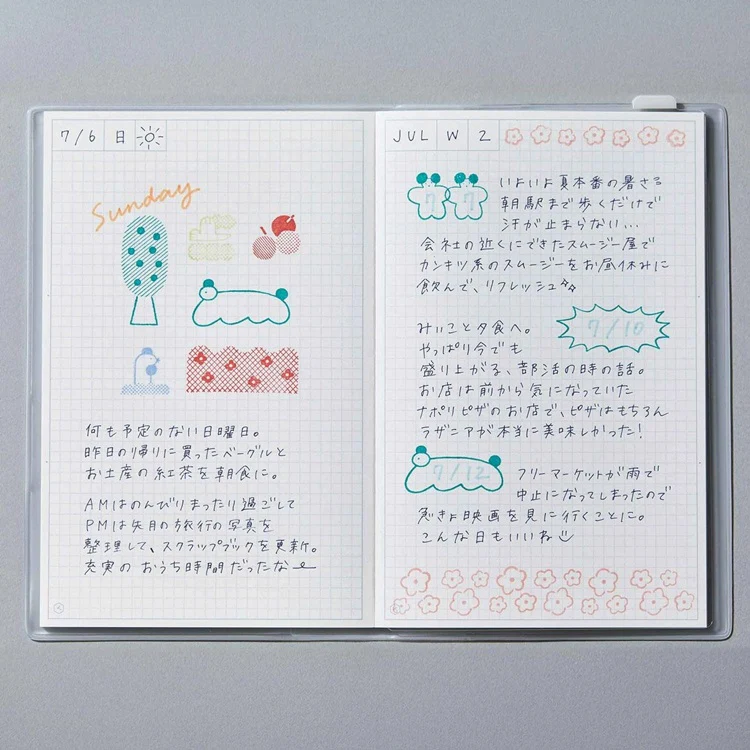 7/6 日
Sunday
何も予定のない日曜日。
昨日の帰りに買ったベーグルと
お土産の紅茶を朝食に。
AMはのんびりまったり過ごして
PMは先月の旅行の写真を
整理して、スクラップブックを更新。
充実のおうち時間だったな
JUL W 2
7 7
いよいよ夏本番の暑さ。
朝駅まで歩くだけで
汗が止まらない...
会社の近くにできたスムージー屋で
カンキツ系のスムージーをお昼休みに
飲んで、リフレッシュ
7/10
みぃこと夕食へ。
やっぱり今でも
盛り上がる、部活の時の話。
お店は前から気になっていた
ナポリピザのお店で、ピザはもちろん
ラザニアが本当に美味しかった!
7/12
フリーマーケットが雨で
中止になってしまったので
急きょ映画を見に行くことに。
こんな日もいいね